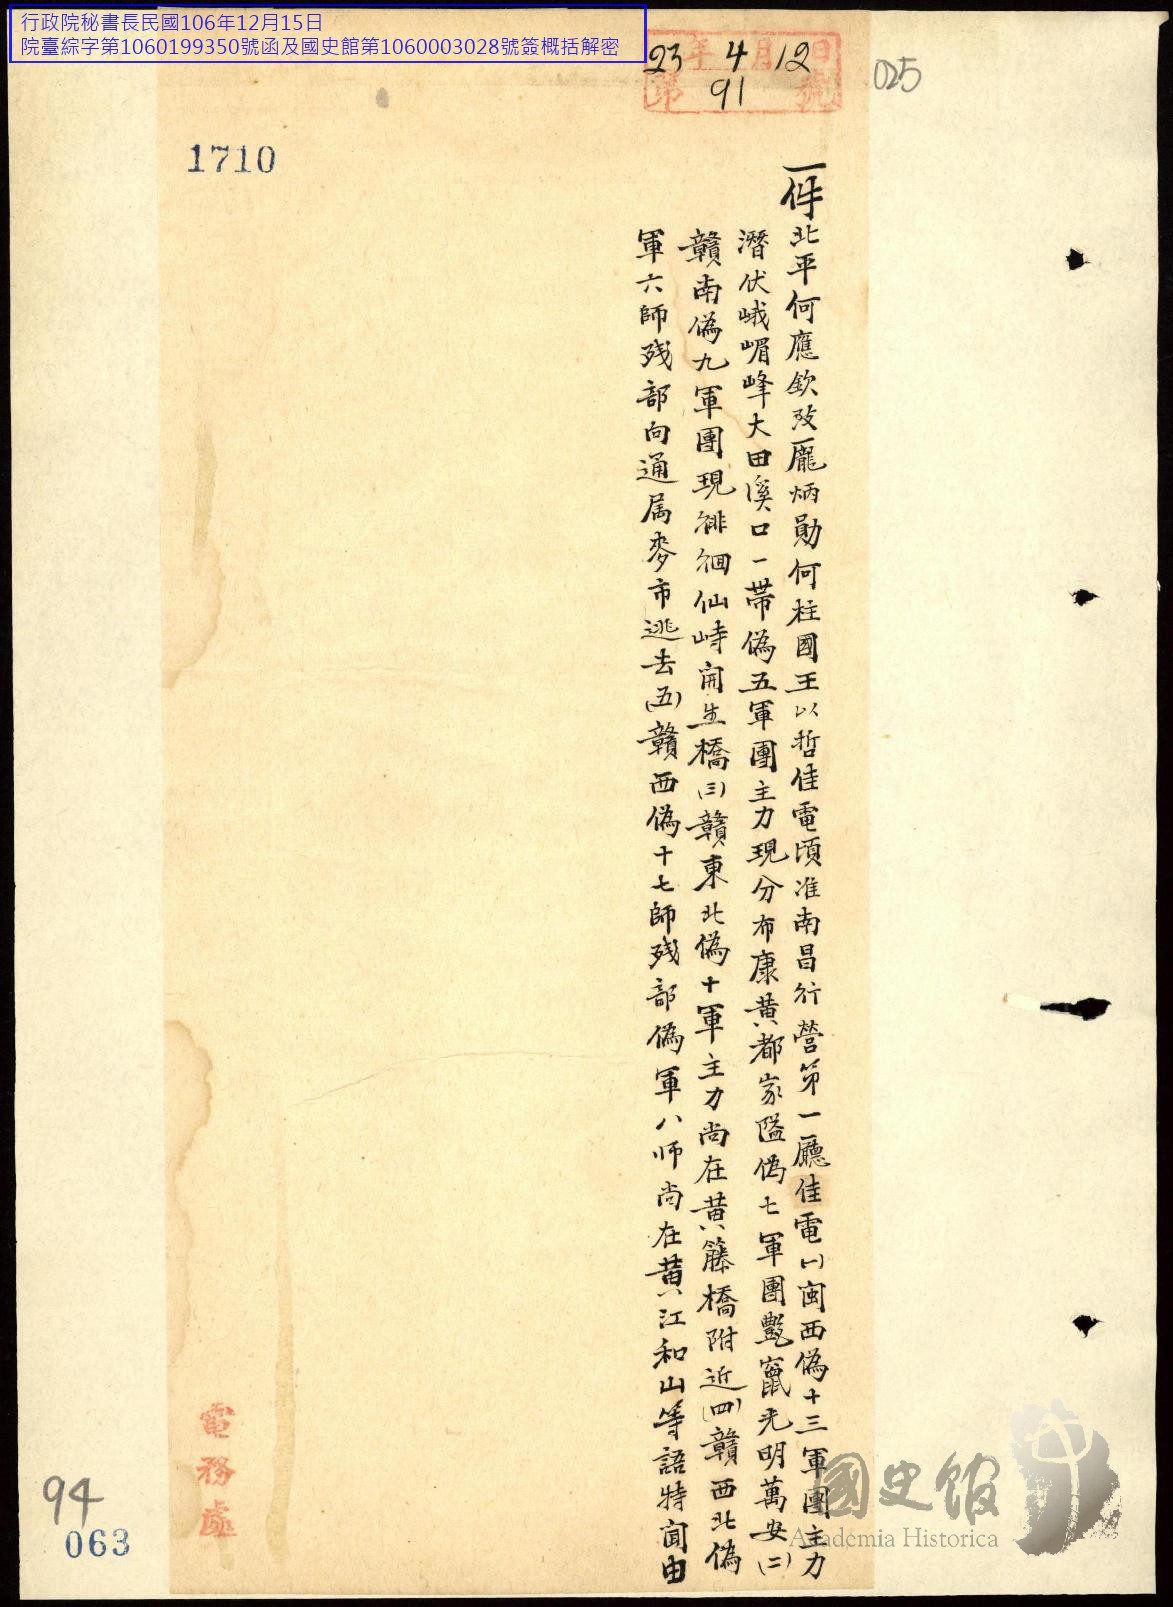 行政院秘書長民國106年12月15日
院臺綜字第1060199350號函及國史館第1060003028號簽概括解密
23年4月12日
第91號
025
1710
一件北平何應欽致龐炳勛何柱國王以哲佳電頃准南昌行營第一廳佳電(一)閩西偽十三軍團主力
潛伏峨嵋峰大田溪口一帶偽五軍團主力現分布康黃都家隘偽七軍團艷竄光明萬安(二)
贛南偽九軍團現徘徊仙峙開生橋(三)贛東北偽十軍主力尚在黃籐橋附近(四)贛西北偽
軍六師残部向通属麥市逃去(五)贛西偽十七師残部偽軍八师尚在黃江和山等語特聞由
電務處
94
063
國史館
Academia Historica